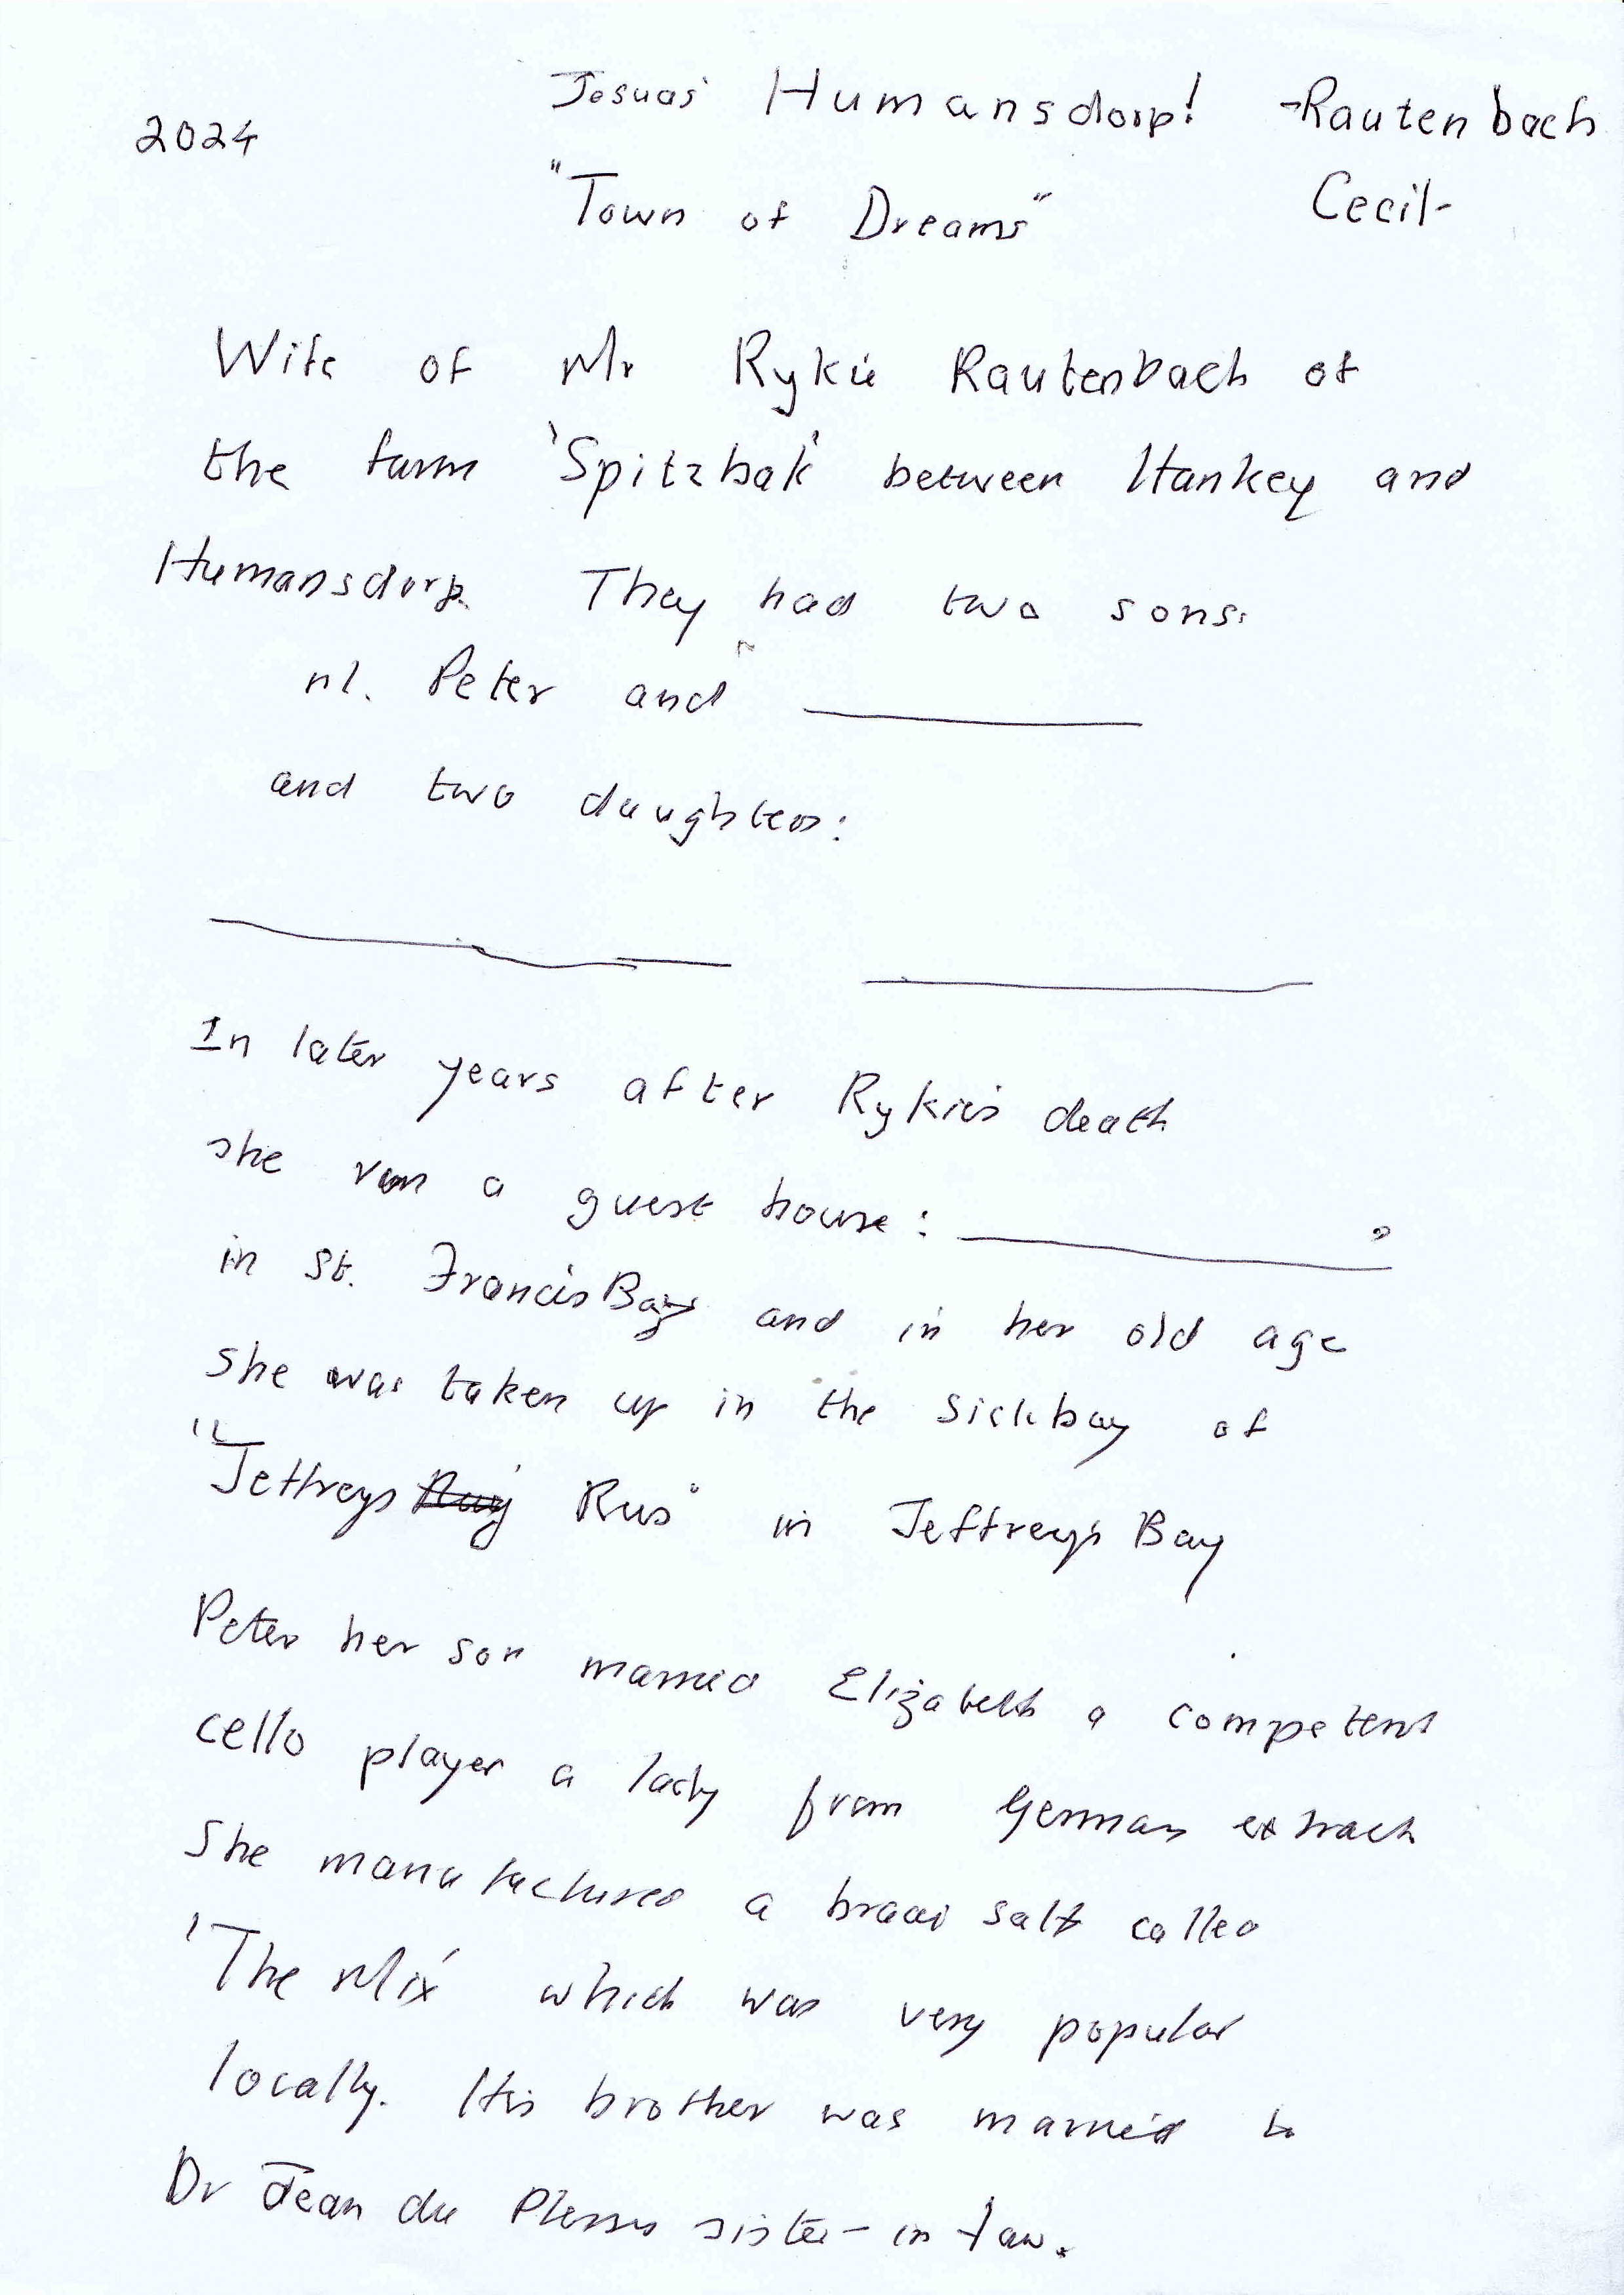 Josuas Humansdorp! -Rautenbach
2024
"Town of Dreams" Cecil-
Wife of Mr Rykie Rautenbach of
the farm 'Spitzbak' between Hankey and
Humansdorp. They had two sons:
nl. Peter and ________
and two daughters:
________ ________
In later years after Rykie's death
she run a guest house: ________
in St. Francis Bay and in her old age
she was taken up in the sickbay of
"Jeffreys Rus" in Jeffreys Bay
Peter her son married Elizabeth a competent
cello player a lady from German extract
She manufactured a braai salt called
'The Mix' which was very popular
locally. His brother was married to
Dr Jean du Plessis sister-in law.